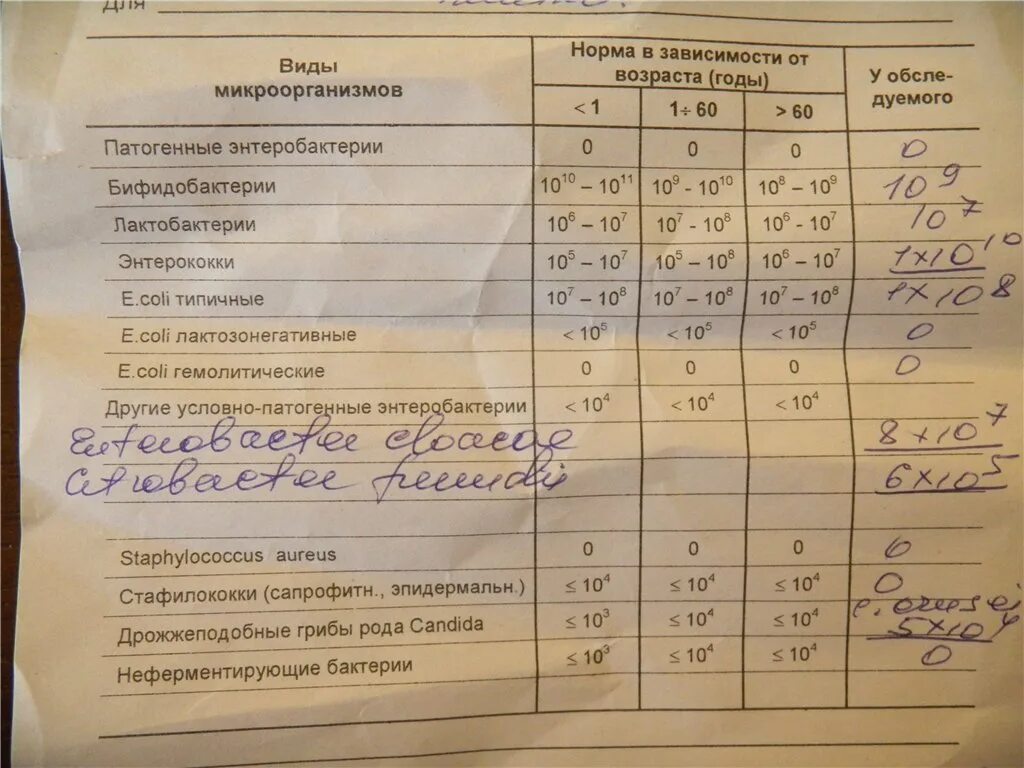 Для
Виды микроорганизмов | Норма в зависимости от возраста (годы) | У обсле-дуемого
< 1 | 1÷ 60 | > 60
Патогенные энтеробактерии | 0 | 0 | 0 | 0
Бифидобактерии | 10¹⁰ – 10¹¹ | 10⁹ - 10¹⁰ | 10⁸ – 10⁹ | 10⁹
Лактобактерии | 10⁶ – 10⁷ | 10⁷ - 10⁸ | 10⁶ - 10⁷ | 10⁷
Энтерококки | 10⁵ – 10⁷ | 10⁵ – 10⁸ | 10⁶ – 10⁷ | 1×10¹⁰
E.coli типичные | 10⁷ – 10⁸ | 10⁷ – 10⁸ | 10⁷ – 10⁸ | 1×10⁸
E.coli лактозонегативные | < 10⁵ | < 10⁵ | < 10⁵ | 0
E.coli гемолитические | 0 | 0 | 0 | 0
Другие условно-патогенные энтеробактерии | < 10⁴ | < 10⁴ | < 10⁴
Enterobacter cloacae | 8×10⁷
Citrobacter freundii | 6×10⁵
Staphylococcus aureus | 0 | 0 | 0 | 0
Стафилококки (сапрофитн., эпидермальн.) | ≤ 10⁴ | ≤ 10⁴ | ≤ 10⁴ | 0
Дрожжеподобные грибы рода Candida | ≤ 10³ | ≤ 10⁴ | ≤ 10⁴ | 5×10⁴
Неферментирующие бактерии | ≤ 10³ | ≤ 10⁴ | ≤ 10⁴ | 0